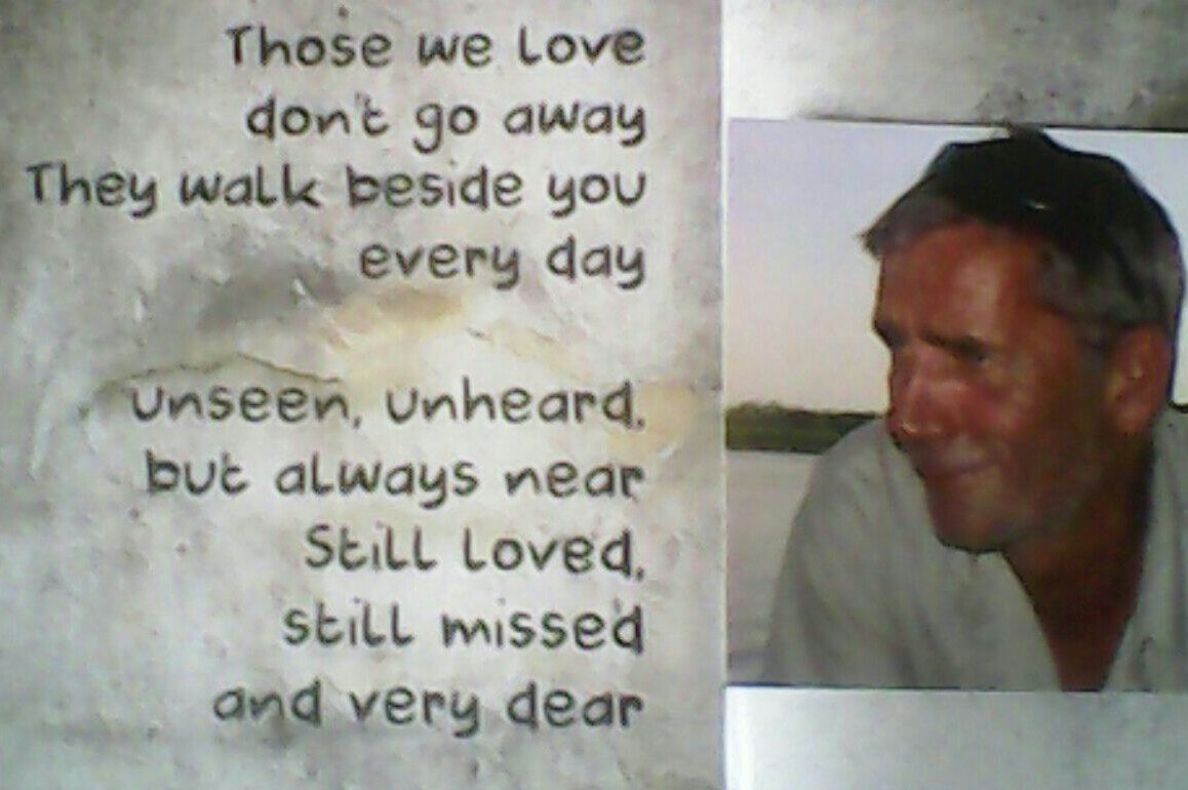 Those we love
don't go away
They walk beside you
every day
unseen, unheard,
but always near
Still loved,
still missed
and very dear